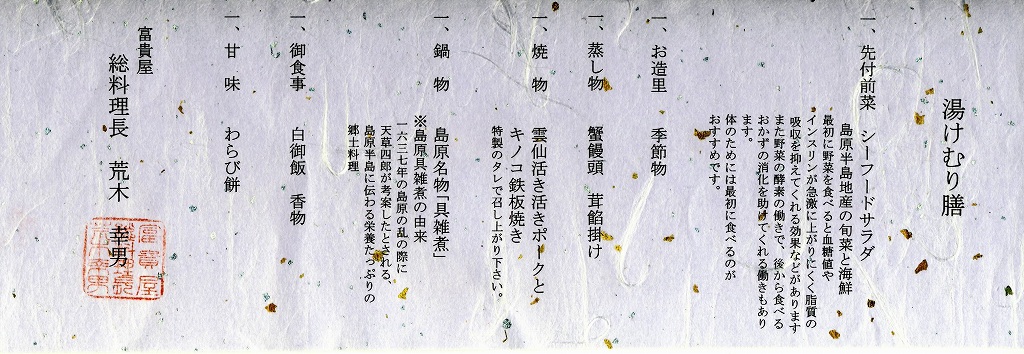 湯けむり膳
一、先付前菜 シーフードサラダ
島原半島地産の旬菜と海鮮
最初に野菜を食べると血糖値や
インスリンが急激に上がりにくく脂質の
吸収を抑えてくれる効果などがあります
また野菜の酵素の働きで、後から食べる
おかずの消化を助けてくれる働きもあり
ます。
体のためには最初に食べるのが
おすすめです。
一、お造里 季節物
一、蒸し物 蟹饅頭 茸餡掛け
一、焼物 雲仙活き活きポークと
キノコ鉄板焼き
特製のタレで召し上がり下さい。
一、鍋物 島原名物「具雑煮」
※島原具雑煮の由来
一六三七年の島原の乱の際に
天草四郎が考案したとされる、
島原半島に伝わる栄養たっぷりの
郷土料理
一、御食事 白御飯 香物
一、甘味 わらび餅
富貴屋
総料理長 荒木 幸男